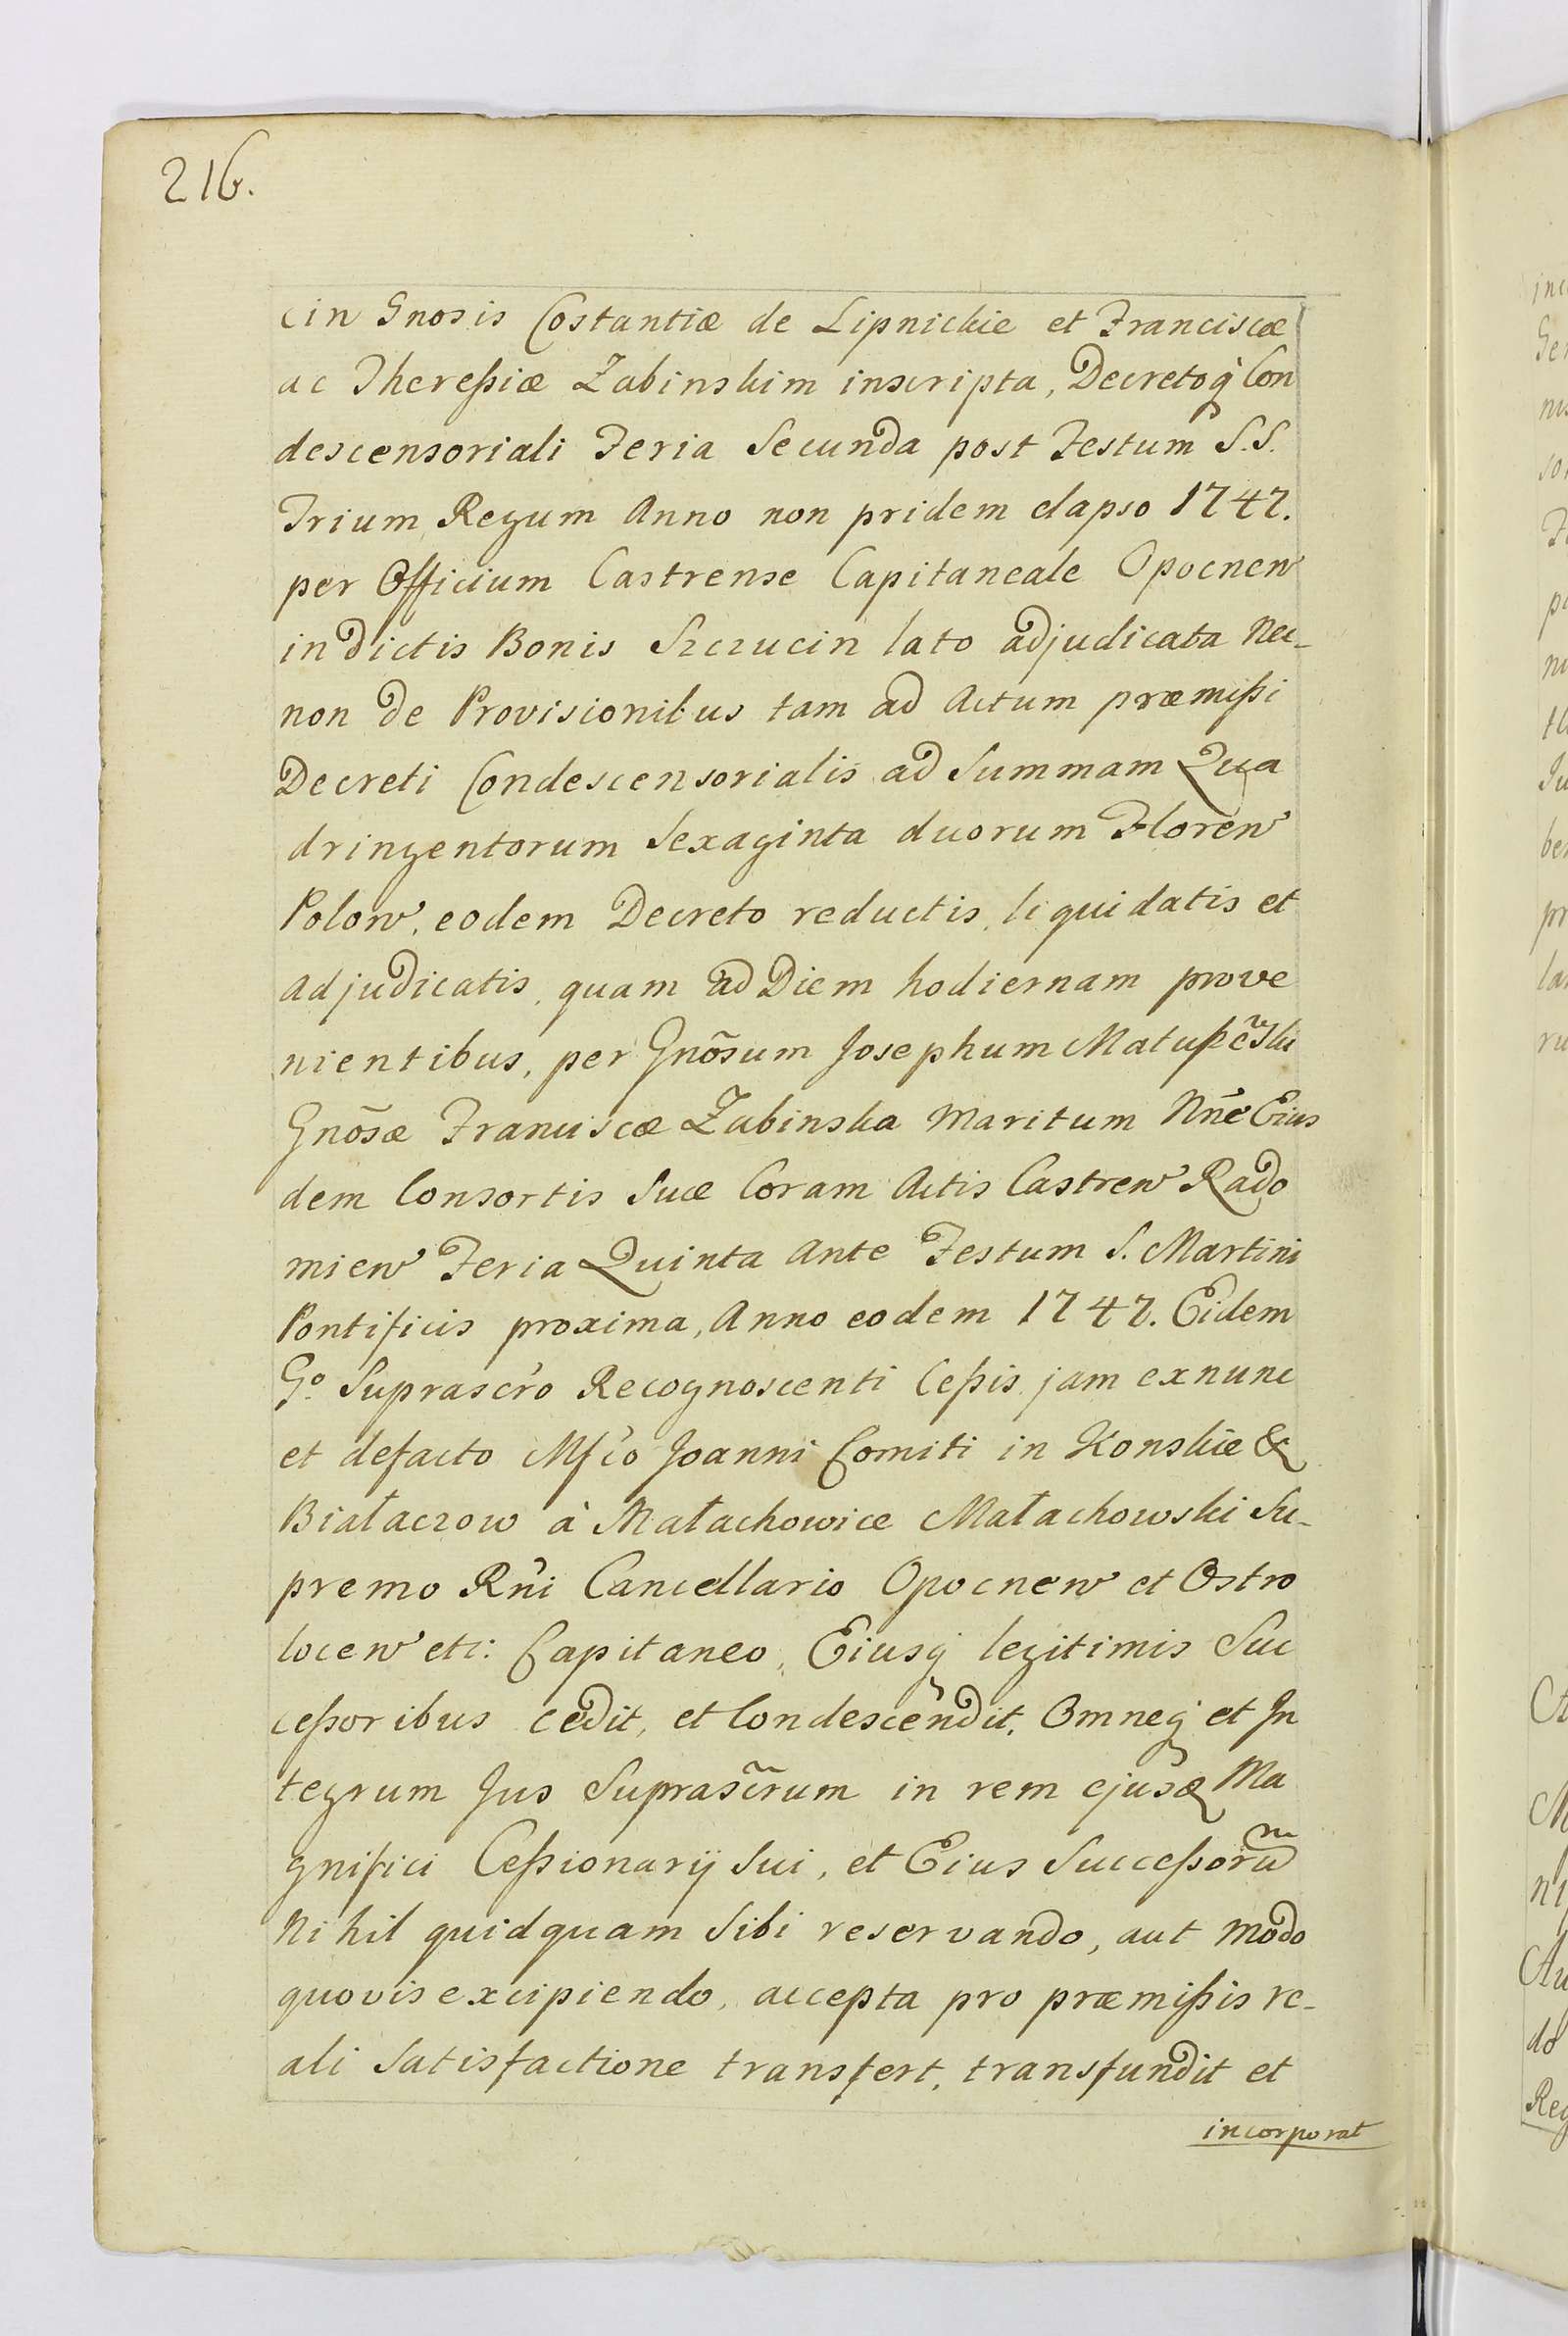 216.
cin Gnosis Costantiæ de Lipnickie et Franciscæ
ac Thereßiæ Zabinskim inscripta, Decretoq́ Con
descensoriali Feria Secunda post Festum S.S.
Trium Regum Anno non pridem elapso 1747.
per Officium Castrense Capitaneale Opocnen
in dictis Bonis Szczucin lato adjudicata Nec-
non de Provisionibus tam ad Actum præmißi
Decreti Condescensorialis ad Summam Qua
dringentorum Sexaginta duorum Floren
Polon. eodem Decreto reductis, liquidatis et
adjudicatis, quam ad Diem hodiernam prove
nientibus, per Gnõsum Josephum
Gnõsæ Franciscæ Zabinska Maritum Nñe Eius
dem Consortis Suæ Coram Actis Castren Rado
mien Feria Quinta ante Festum S. Martini
Pontificis proxima, Anno eodem 1747. Eidem
Go. Suprascr̃o Recognoscenti Ceßis jam exnunc
et defacto Mfco Joanni Comiti in Konskie &
Białaczow à Małachowice Małachowski Su-
premo Rñi Cancellario Opocnen et Ostro
locen etc: Capitaneo, Eiusq́ legitimis Suc
ceßoribus cedit, et Condescendit, Omneq́ et In
tegrum Jus Suprascr̃um in rem ejusđ Ma
gnifici Ceßionarij Sui, et Eius Succeßorũ
Nihil quidquam Sibi reservando, aut modo
quovis excipiendo, accepta pro præmißis re-
ali Satisfactione transfert, transfundit et
incorporat